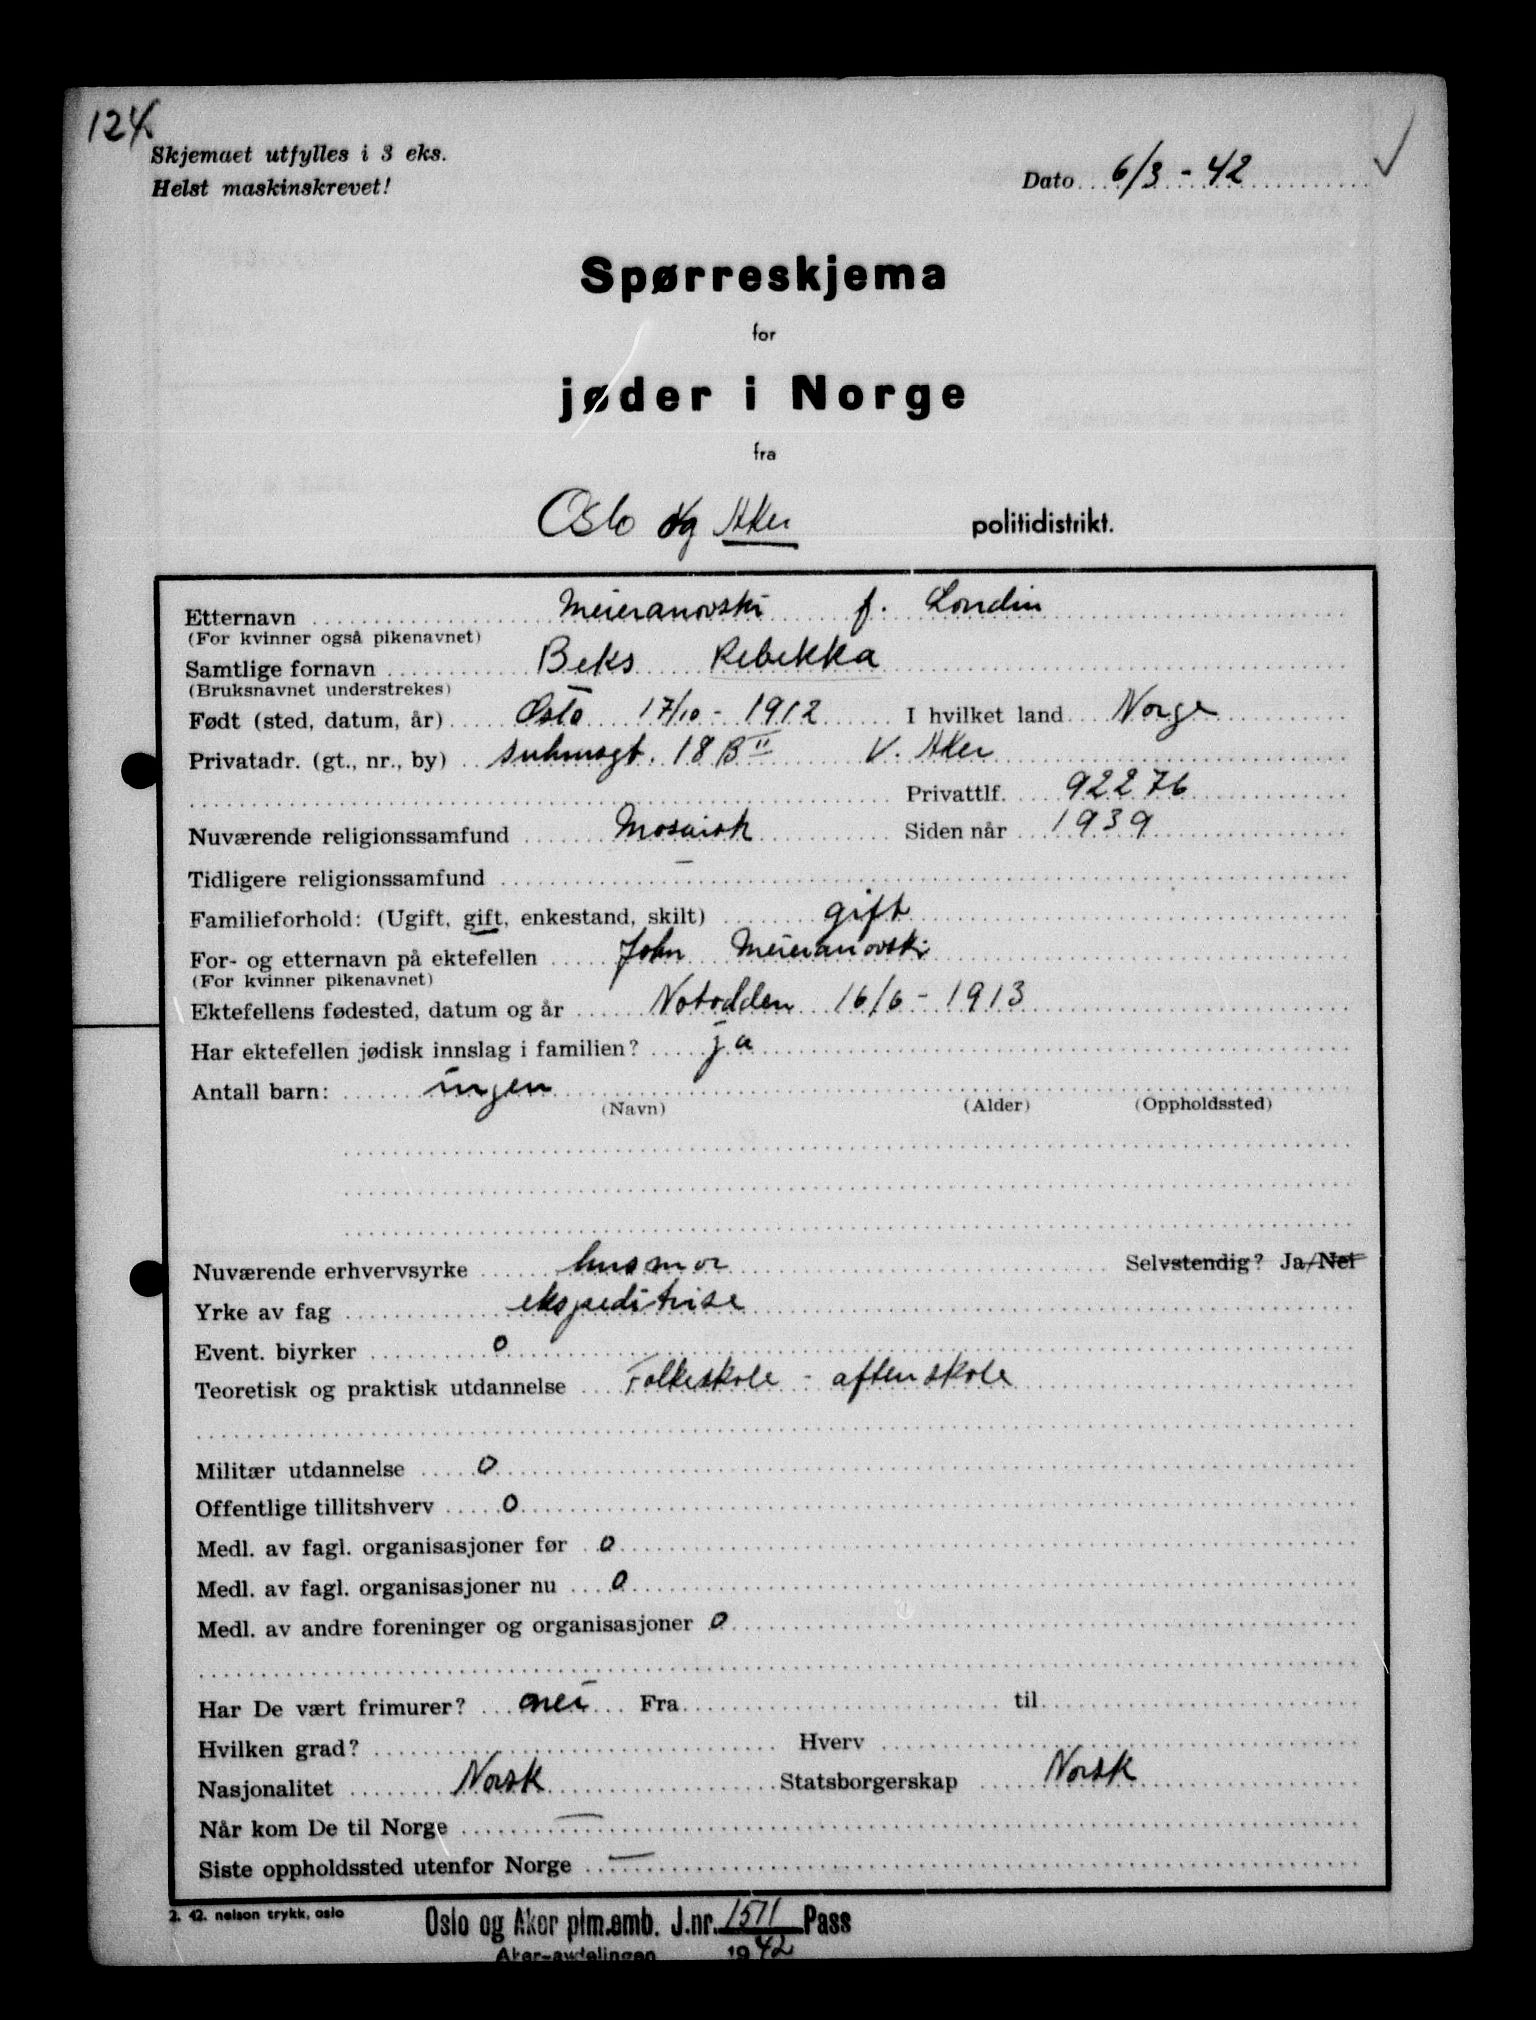 124
Skjemaet utfylles i 3 eks.
Helst maskinskrevet!
Dato 6/3 - 42
Spørreskjema
for
jøder i Norge
fra
Oslo og Aker politidistrikt.
Etternavn Meieranovski f. Londin
(For kvinner også pikenavnet)
Samtlige fornavn Beks Rebekka
(Bruksnavnet understrekes)
Født (sted, datum, år) Oslo 17/10 - 1912 I hvilket land Norge
Privatadr. (gt., nr., by) Suhmsgt. 18 B II V. Aker
Privattlf. 92276
Nuværende religionssamfund Mosaisk Siden når 1939
Tidligere religionssamfund —
Familieforhold: (Ugift, gift, enkestand, skilt) gift
For- og etternavn på ektefellen John Meieranovski
(For kvinner pikenavnet)
Ektefellens fødested, datum og år Notodden 16/6 - 1913
Har ektefellen jødisk innslag i familien? ja
Antall barn: ingen
(Navn) (Alder) (Oppholdssted)
Nuværende erhvervsyrke husmor Selvstendig? Ja/Nei
Yrke av fag ekspeditrise
Event. biyrker 0
Teoretisk og praktisk utdannelse Folkeskole - aftenskole
Militær utdannelse 0
Offentlige tillitshverv 0
Medl. av fagl. organisasjoner før 0
Medl. av fagl. organisasjoner nu 0
Medl. av andre foreninger og organisasjoner 0
Har De vært frimurer? nei Fra til
Hvilken grad? Hverv
Nasjonalitet Norsk Statsborgerskap Norsk
Når kom De til Norge —
Siste oppholdssted utenfor Norge —
2. 42. nelson trykk, oslo
Oslo og Aker plm.emb. J.nr. 1511 Pass
Aker-avdelingen 1942